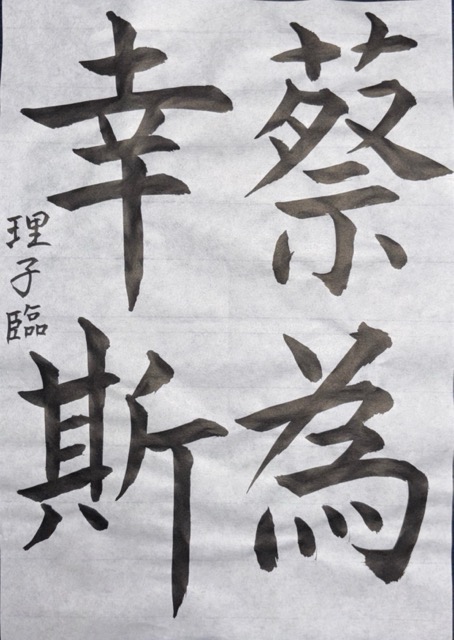 蔡為
幸斯
理子臨